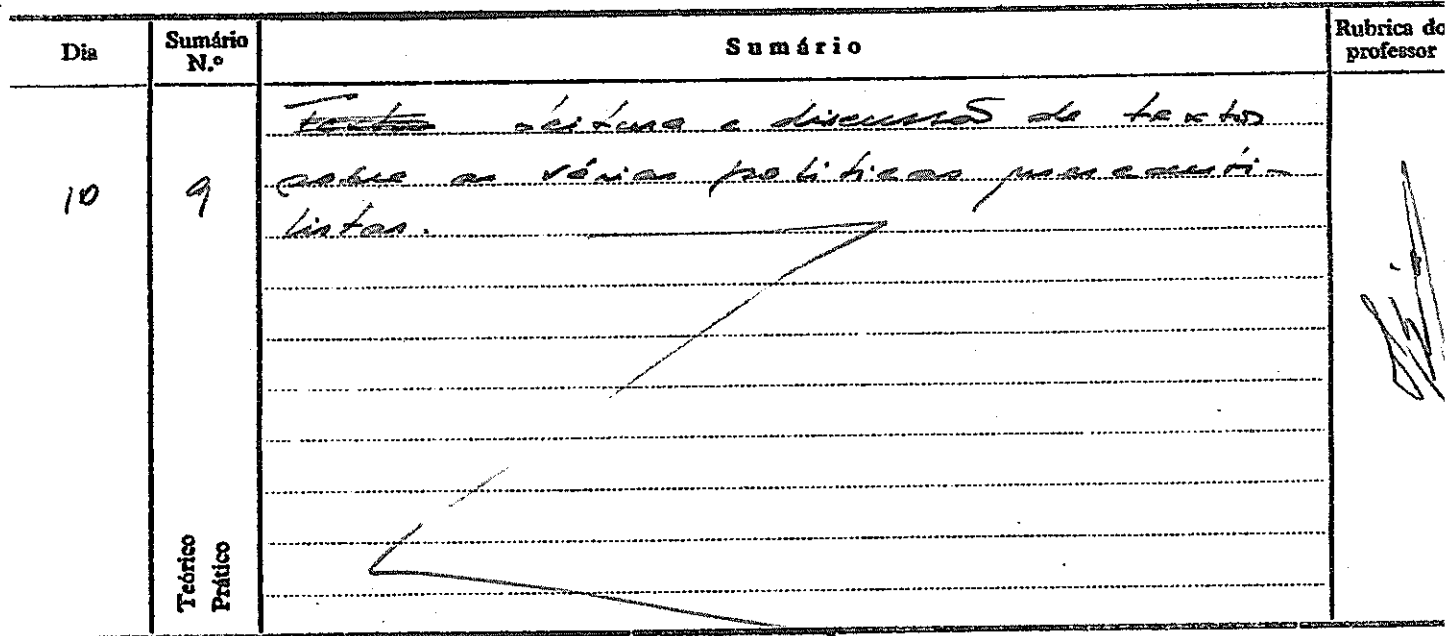 Dia
Sumário N.º
Sumário
Rubrica do professor
10
9
Leitura e discussão de textos
sobre as várias políticas mercanti-
listas.
Teórico
Prático